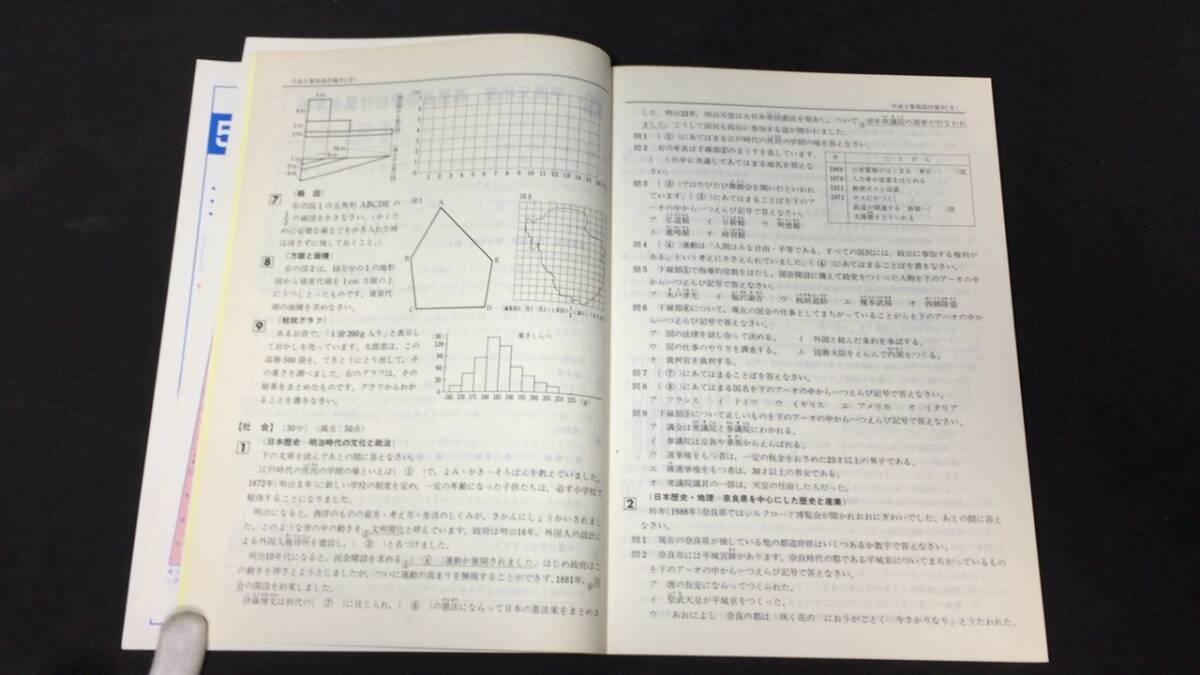 平成2筑波大附属中(2)
7 (縮図)
右の図1の五角形ABCDE の
1/2 の縮図をかきなさい。(かくた
めに必要な線などをかき入れた時
は消さずに残しておくこと。)
8 (方眼と面積)
右の図2は、10万分の1の地形
図から猪苗代湖を1cm方眼の上
にうつしとったものです。猪苗代
湖の面積を求めなさい。
9 (柱状グラフ)
ある お店で、「1袋200g入り」と表示し
ておかしを売っています。太郎君は、この
品物500袋を、てきとうにとり出して、そ
の重さを調べました。右のグラフは、その
結果をまとめたものです。グラフからわか
ることを書きなさい。
図1
A
B
E
C
D
図2
(袋)
重さしらべ
120
90
60
30
0
(g)
【社 会】 (30分) (満点:50点)
1 (日本歴史―明治時代の文化と政治)
下の文章を読んであとの問に答えなさい。
江戸時代の庶民の学問の場といえば( ① )で、よみ・かき・そろばんを教えていました。
1872年(明治5年)に新しい学校の制度を定め、一定の年齢になった子供たちは、必ず小学校で
勉強することになりました。
明治になると、西洋のものの見方・考え方・生活のしくみが、さかんにしょうかいされまし
た。このような世の中の動きを②文明開化と呼んでいます。政府は明治16年、外国人の設計に
よる外国人接待所を建設し、( ③ )と名づけました。
明治10年代になると、国会開設を求める⑤( ④ )運動が展開されました。はじめ政府はこ
の動きを押さえようとしましたが、ついに運動の高まりを無視することができず、1881年、⑥国
会の開設を約束しました。
伊藤博文は初代の( ⑦ )に任じられ、( ⑧ )の憲法にならって日本の憲法案をまとめま
した。明治22年、明治天皇は大日本帝国憲法を発布し、ついで、⑨翌年衆議院の選挙が行なわれ
ました。こうして国民も政治に参加する道が開かれました。
問1 ( ① )にあてはまる江戸時代の庶民の学問の場を答えなさい。
問2 右の年表は下線部②のようすを表しています。
( )の中に共通してあてはまる地名を答えな
さい。
年 ことがら
1869 公衆電報がはじまる 東京―( )間
1870 人力車が営業をはじめる
1871 郵便ポスト設置
1872 ガス灯がつく( )
鉄道が開通する 新橋―( )間
太陽暦をとりいれる
問3 ( ③ )ではたびたび舞踏会を開いたといわれ
ています。( ③ )にあてはまることばを下のア
ーオの中から一つえらび記号で答えなさい。
ア 弘道館 イ 日新館 ウ 明徳館
エ 鹿鳴館 オ 時習館
問4 ( ④ )運動は「人間はみな自由・平等である。すべての国民には、政治に参加する権利が
ある。」という考えにささえられていました。( ④ )にあてはまることばを書きなさい。
問5 下線部⑤で指導的役割をはたし、国会開設に備えて政党をつくった人物を下のア―オの中
から一つえらび記号で答えなさい。
ア 木戸孝允 イ 福沢諭吉 ウ 板垣退助 エ 榎本武揚 オ 西郷隆盛
問6 下線部⑥について、現在の国会の仕事としてまちがっていることがらを下のア―オの中か
ら一つえらび記号で答えなさい。
ア 国の法律を話し合って決める。 イ 外国と結んだ条約を承認する。
ウ 国の仕事のやり方を調査する。 エ 国務大臣をえらんで内閣をつくる。
オ 裁判官を裁判する。
問7 ( ⑦ )にあてはまることばを答えなさい。
問8 ( ⑧ )にあてはまる国名を下のア―オの中から一つえらび記号で答えなさい。
ア フランス イ ドイツ ウ イギリス エ アメリカ オ イタリア
問9 下線部⑨について正しいものを下のア―オの中から一つえらび記号で答えなさい。
ア 議会は衆議院と参議院にわかれる。
イ 参議院は皇族や華族からえらばれる。
ウ 選挙権をもつ者は、一定の税金をおさめた25才以上の男子である。
エ 被選挙権をもつ者は、30才以上の男女である。
オ 衆議院議員の一部は、天皇の任命した人だった。
2 (日本歴史・地理―奈良県を中心にした歴史と産業)
昨年(1988年)奈良県ではシルクロード博覧会が開かれおおにぎわいでした。あとの問に答え
なさい。
問1 現在の奈良県が接している他の都道府県はいくつあるか数字で答えなさい。
問2 奈良市には平城宮跡があります。奈良時代の都である平城京についてまちがっているもの
を下のア―オの中から一つえらび記号で答えなさい。
ア 唐の長安にならってつくられた。
イ 聖武天皇が平城京をつくった。
ウ 「あおによし 奈良の都は 咲く花の におうがごとく 今さかりなり」とうたわれた。